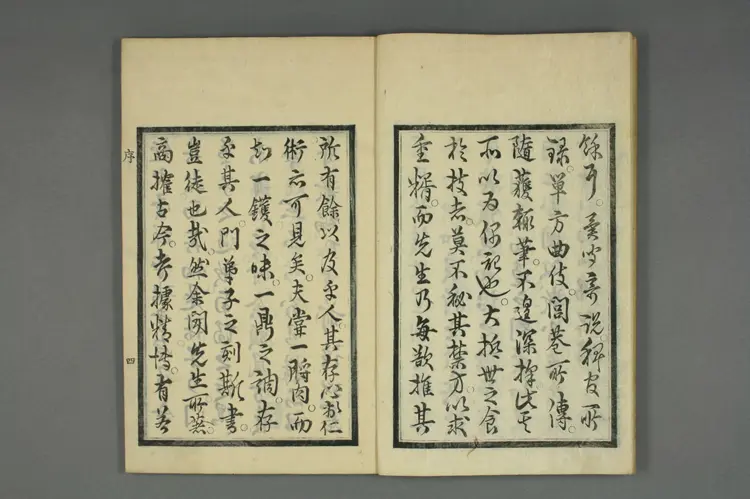 餘耳。異聞奇說稗官所
錄。單方曲伎閭巷所傳。
隨獲輒筆。不遑深擇此其
所以為偶記也。大抵世之食
於技者。莫不秘其禁方。以求
重糈。而先生乃每欲推其
所有餘以及乎人。其存心於仁
術。亦可見矣。夫嘗一臠肉。而
知一鑊之味。一鼎之調。存
乎其人。門弟子之刻斯書。
豈徒也哉。然余聞先生所著。
高搉古今。考據精博。有若
序
四